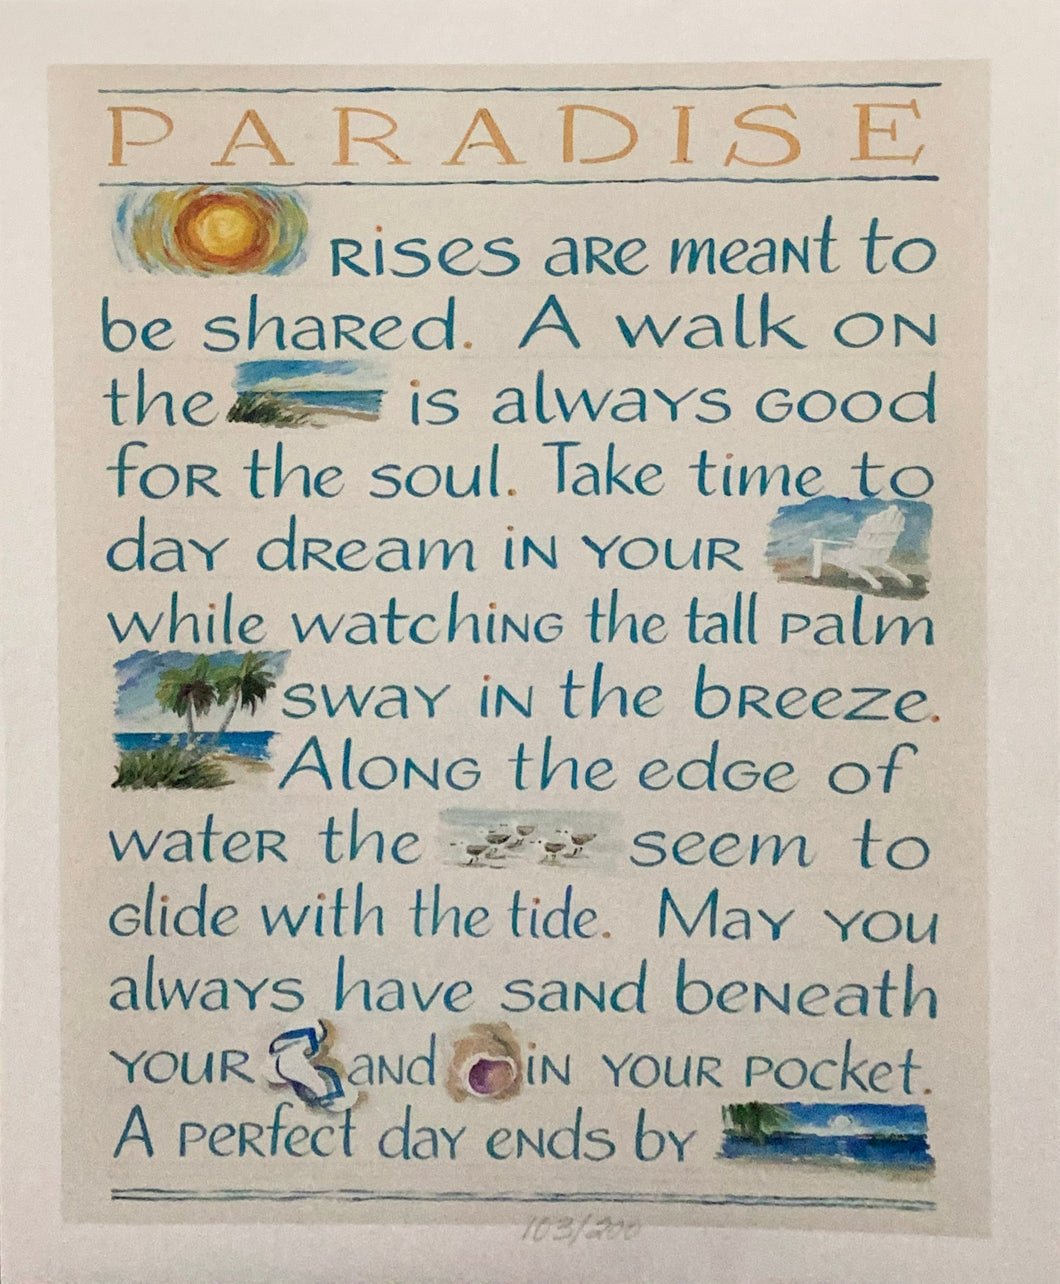 PARADISE
RISES ARE MEANT TO
be shared. A walk on
the is always good
for the soul. Take time to
day dream in your
while watching the tall palm
sway in the breeze.
Along the edge of
water the seem to
glide with the tide. May you
always have sand beneath
your and in your pocket.
A perfect day ends by
103/200